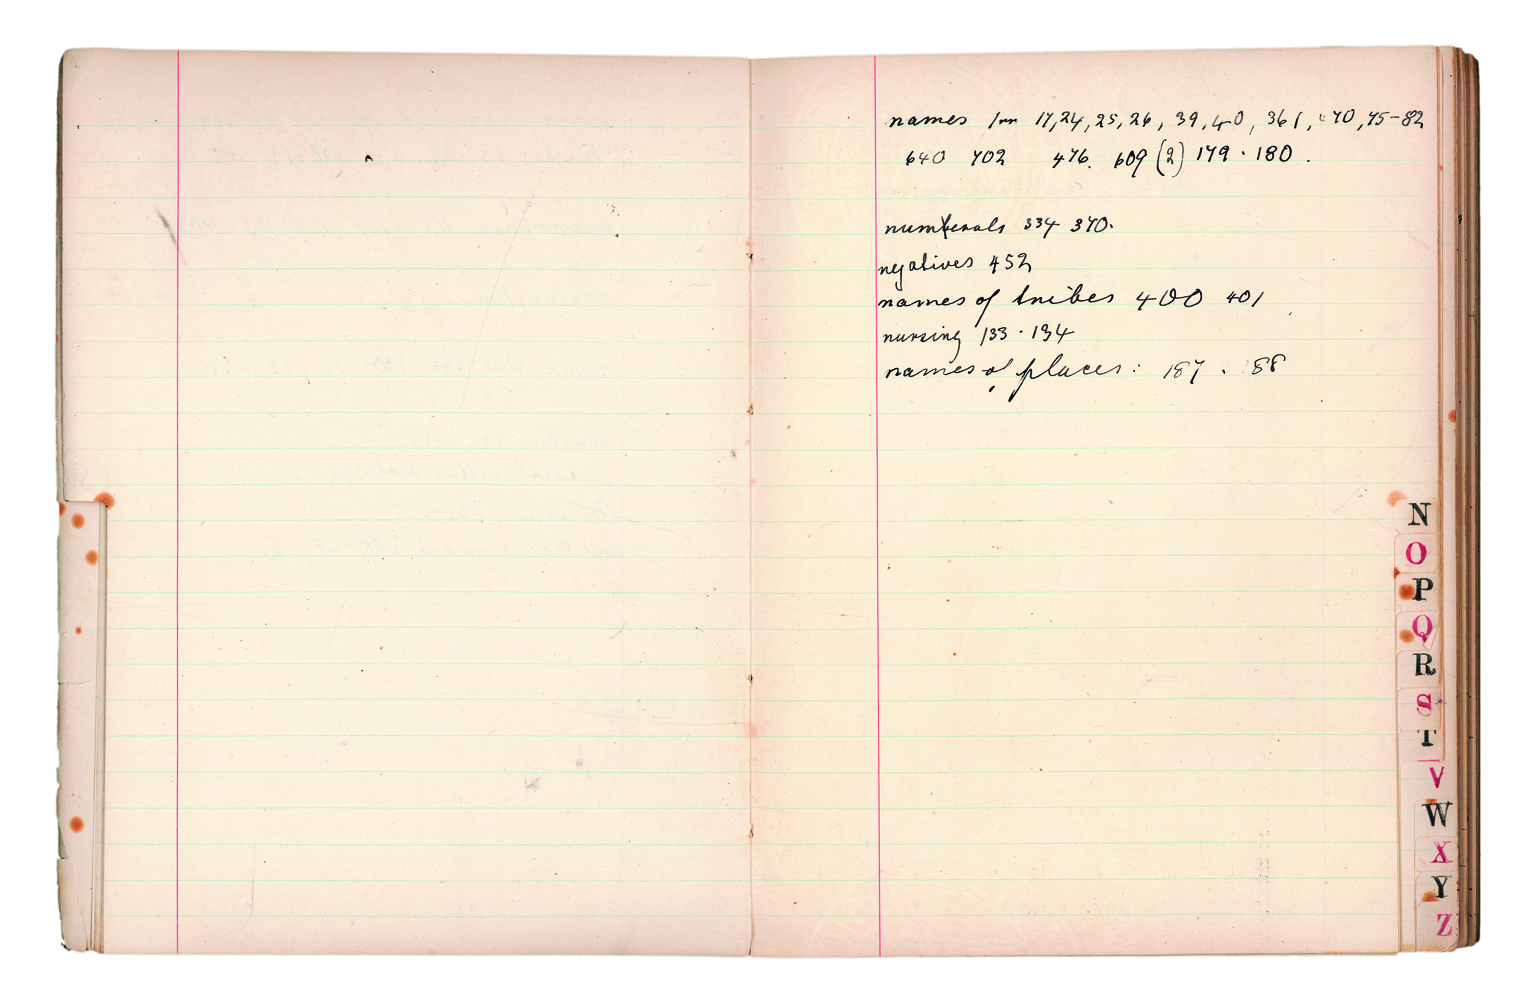 names 17, 24, 25, 26, 39, 40, 361, 470, 75-82
640 702 476. 609 (2) 179 · 180.
numerals 334 370.
negatives 452
names of tribes 400 401
nursing 133 · 134
names of places: 187 . 188
N
O
P
Q
R
S
T
V
W
X
Y
Z